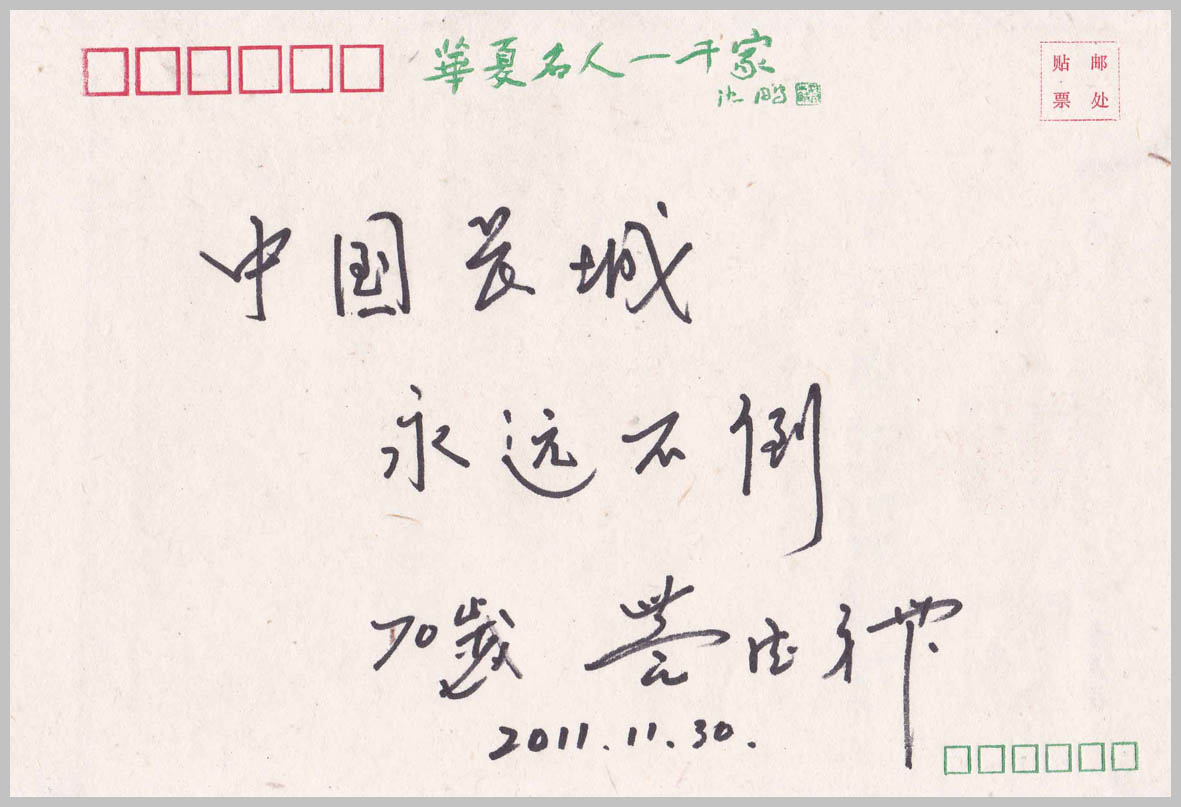 華夏名人一千家
沈鹏
贴 邮
票 处
中国长城
永远不倒
70歲
2011.11.30.